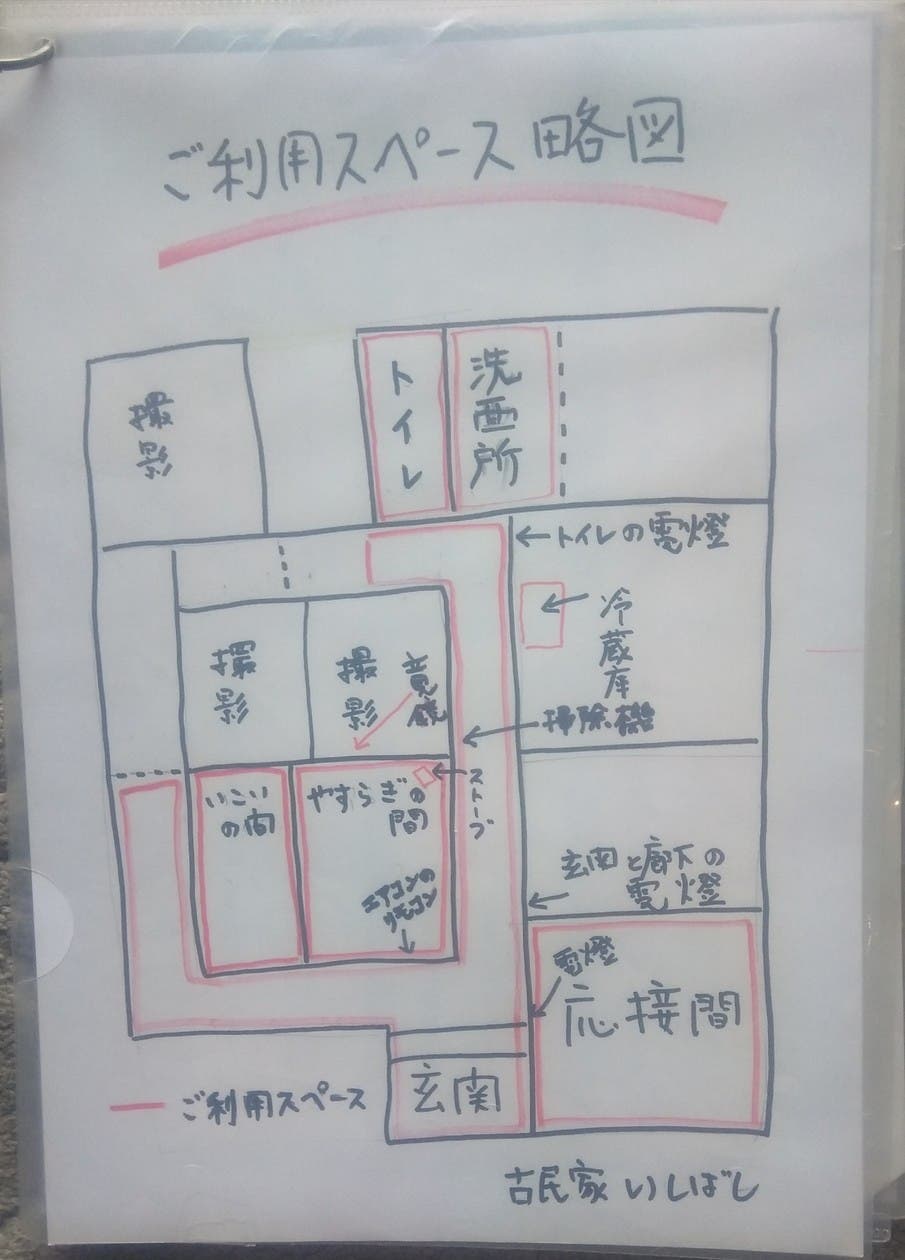 ご利用スペース略図
トイレ
洗面所
撮影
トイレの電燈
冷蔵庫
撮影
撮影
掃除機
ストーブ
いこい
の間
やすらぎの
間
エアコンの
リモコン
玄関と廊下の
電燈
電燈
応接間
玄関
ご利用スペース
古民家 いしばし